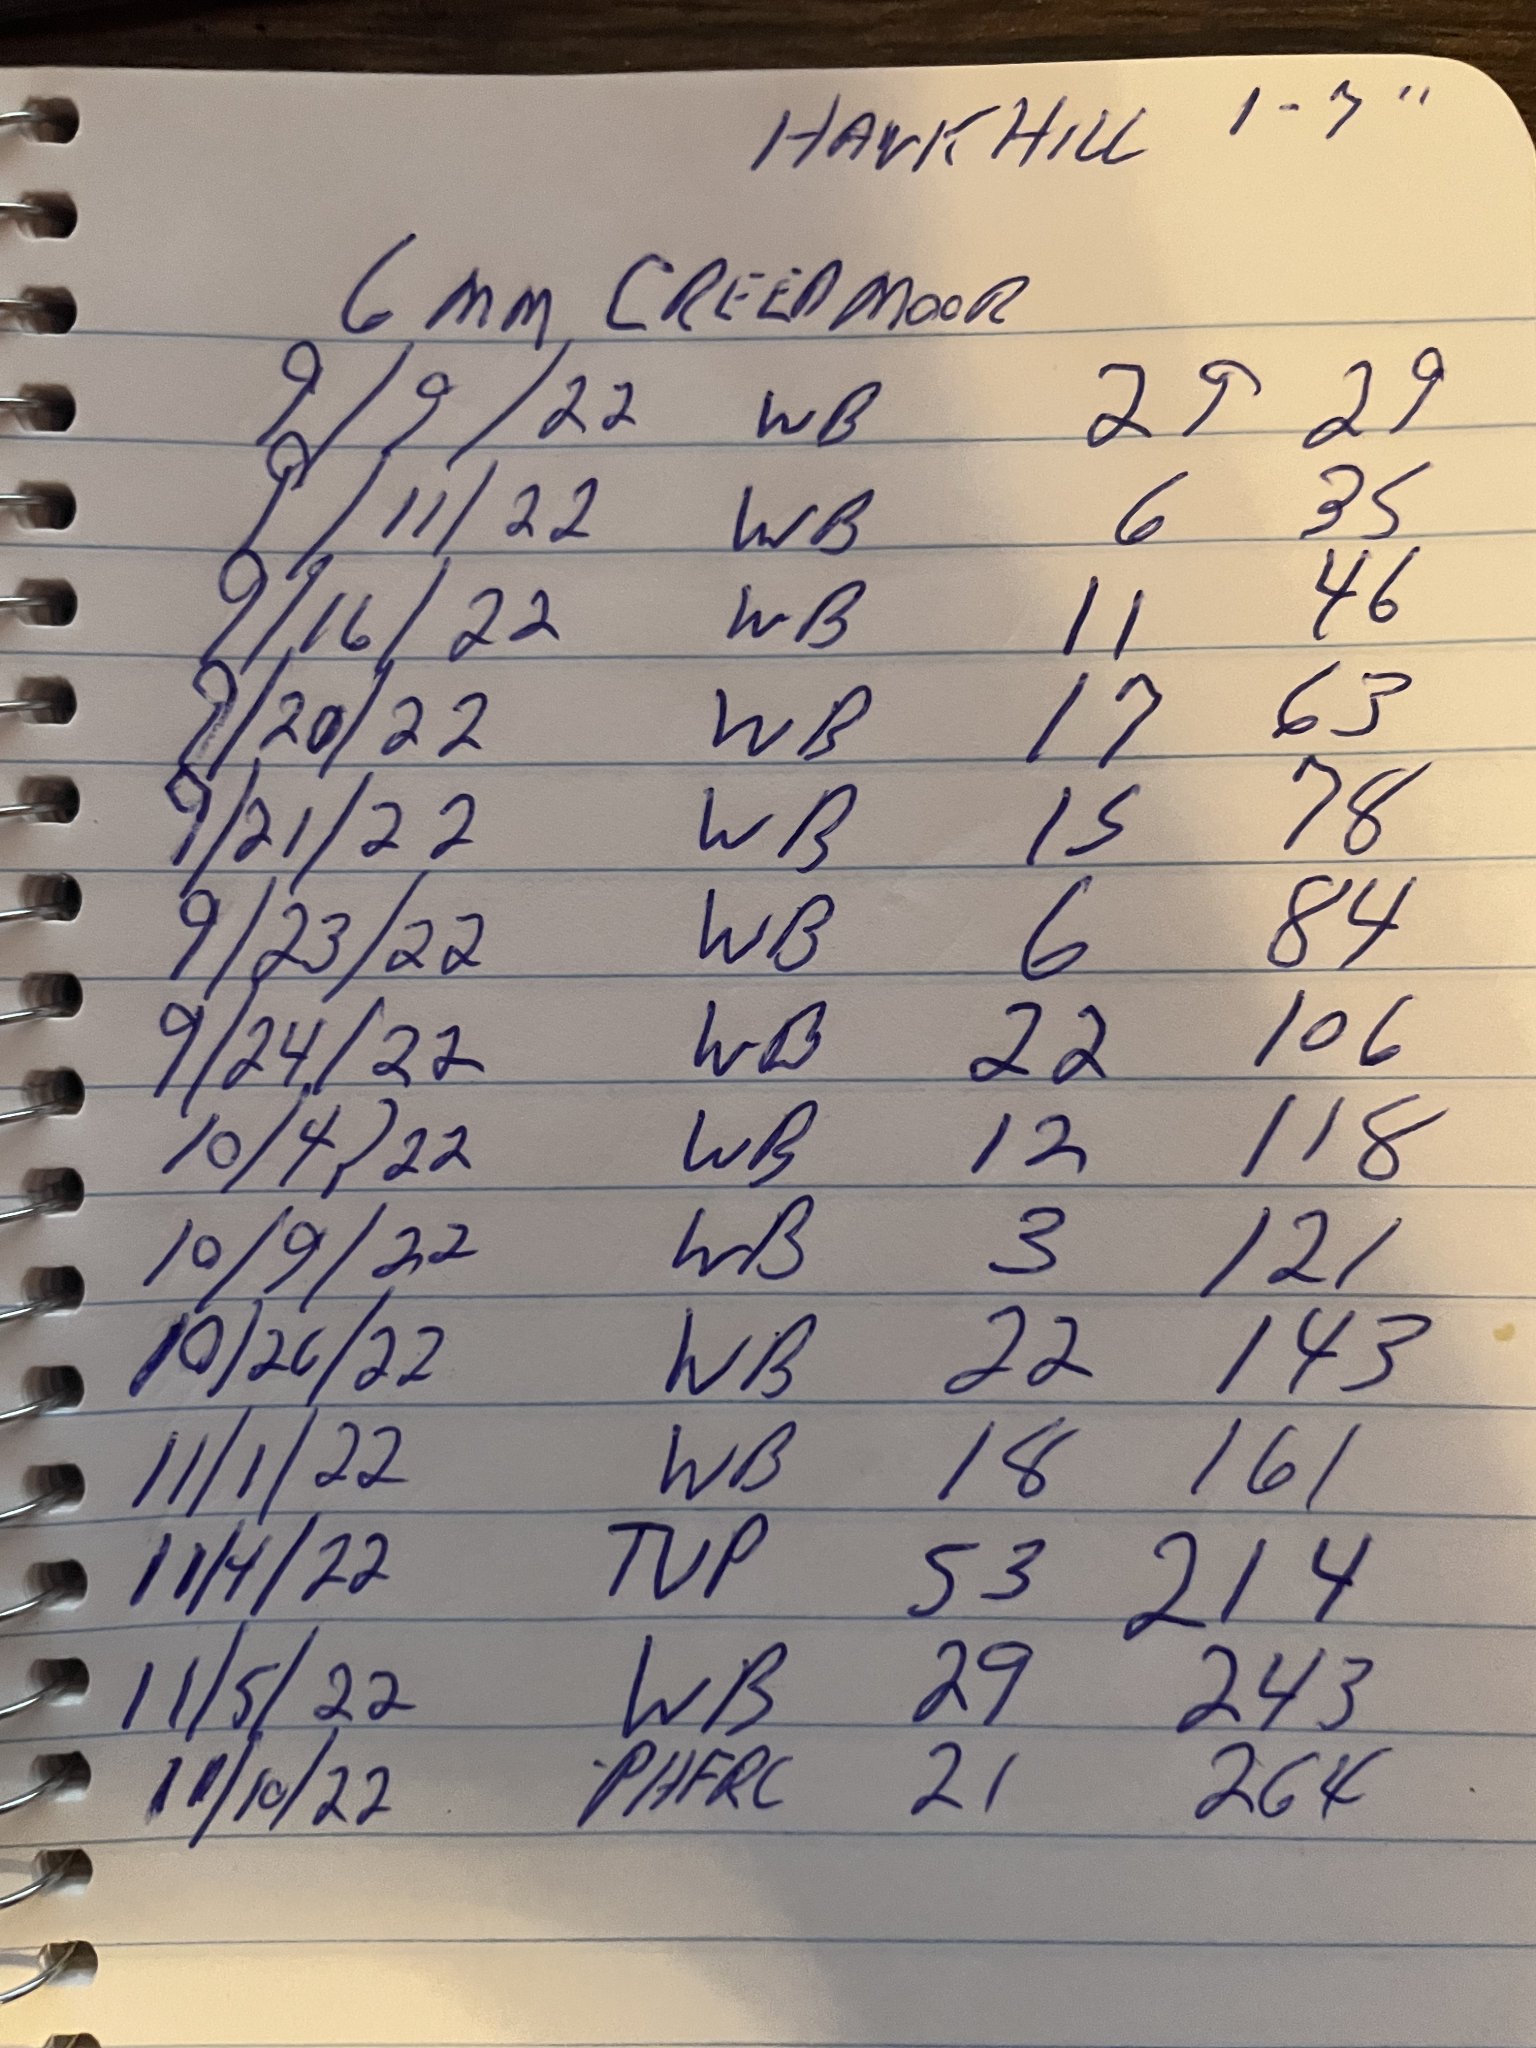 HAWK HILL 1-7"
6 mm CREEDMOOR
9/9/22 WB 29 29
9/11/22 WB 6 35
9/16/22 WB 11 46
9/20/22 WB 17 63
9/21/22 WB 15 78
9/23/22 WB 6 84
9/24/22 WB 22 106
10/4/22 WB 12 118
10/9/22 WB 3 121
10/26/22 WB 22 143
11/1/22 WB 18 161
11/4/22 TVP 53 214
11/5/22 WB 29 243
11/10/22 PHFRC 21 264